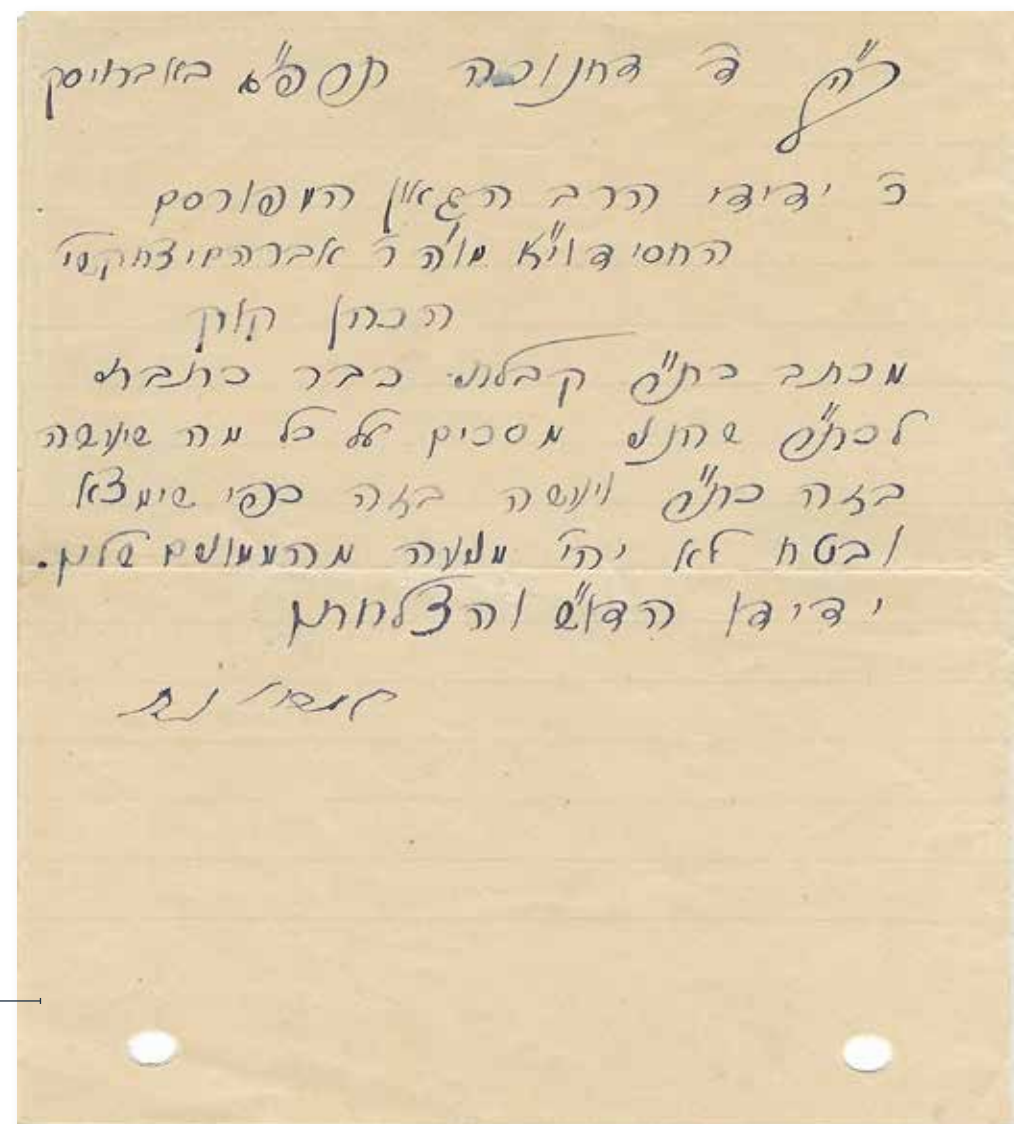 ב"ה ד' דחנוכה תרפ"א באברויסק
כ' ידידי הרב הגאון המפורסם
החסיד וי"א מו"ה ר' אברהם יצחק שי'
הכהן קוק
מכתב כת"ר קבלתי. כבר כתבתי
לכת"ר שהנני מסכים על כל מה שיעשה
בזה כת"ר ויעשה בזה כפי שימצא
ובטח לא יהי' מהממונים שלנו.
ידידו הדו"ש